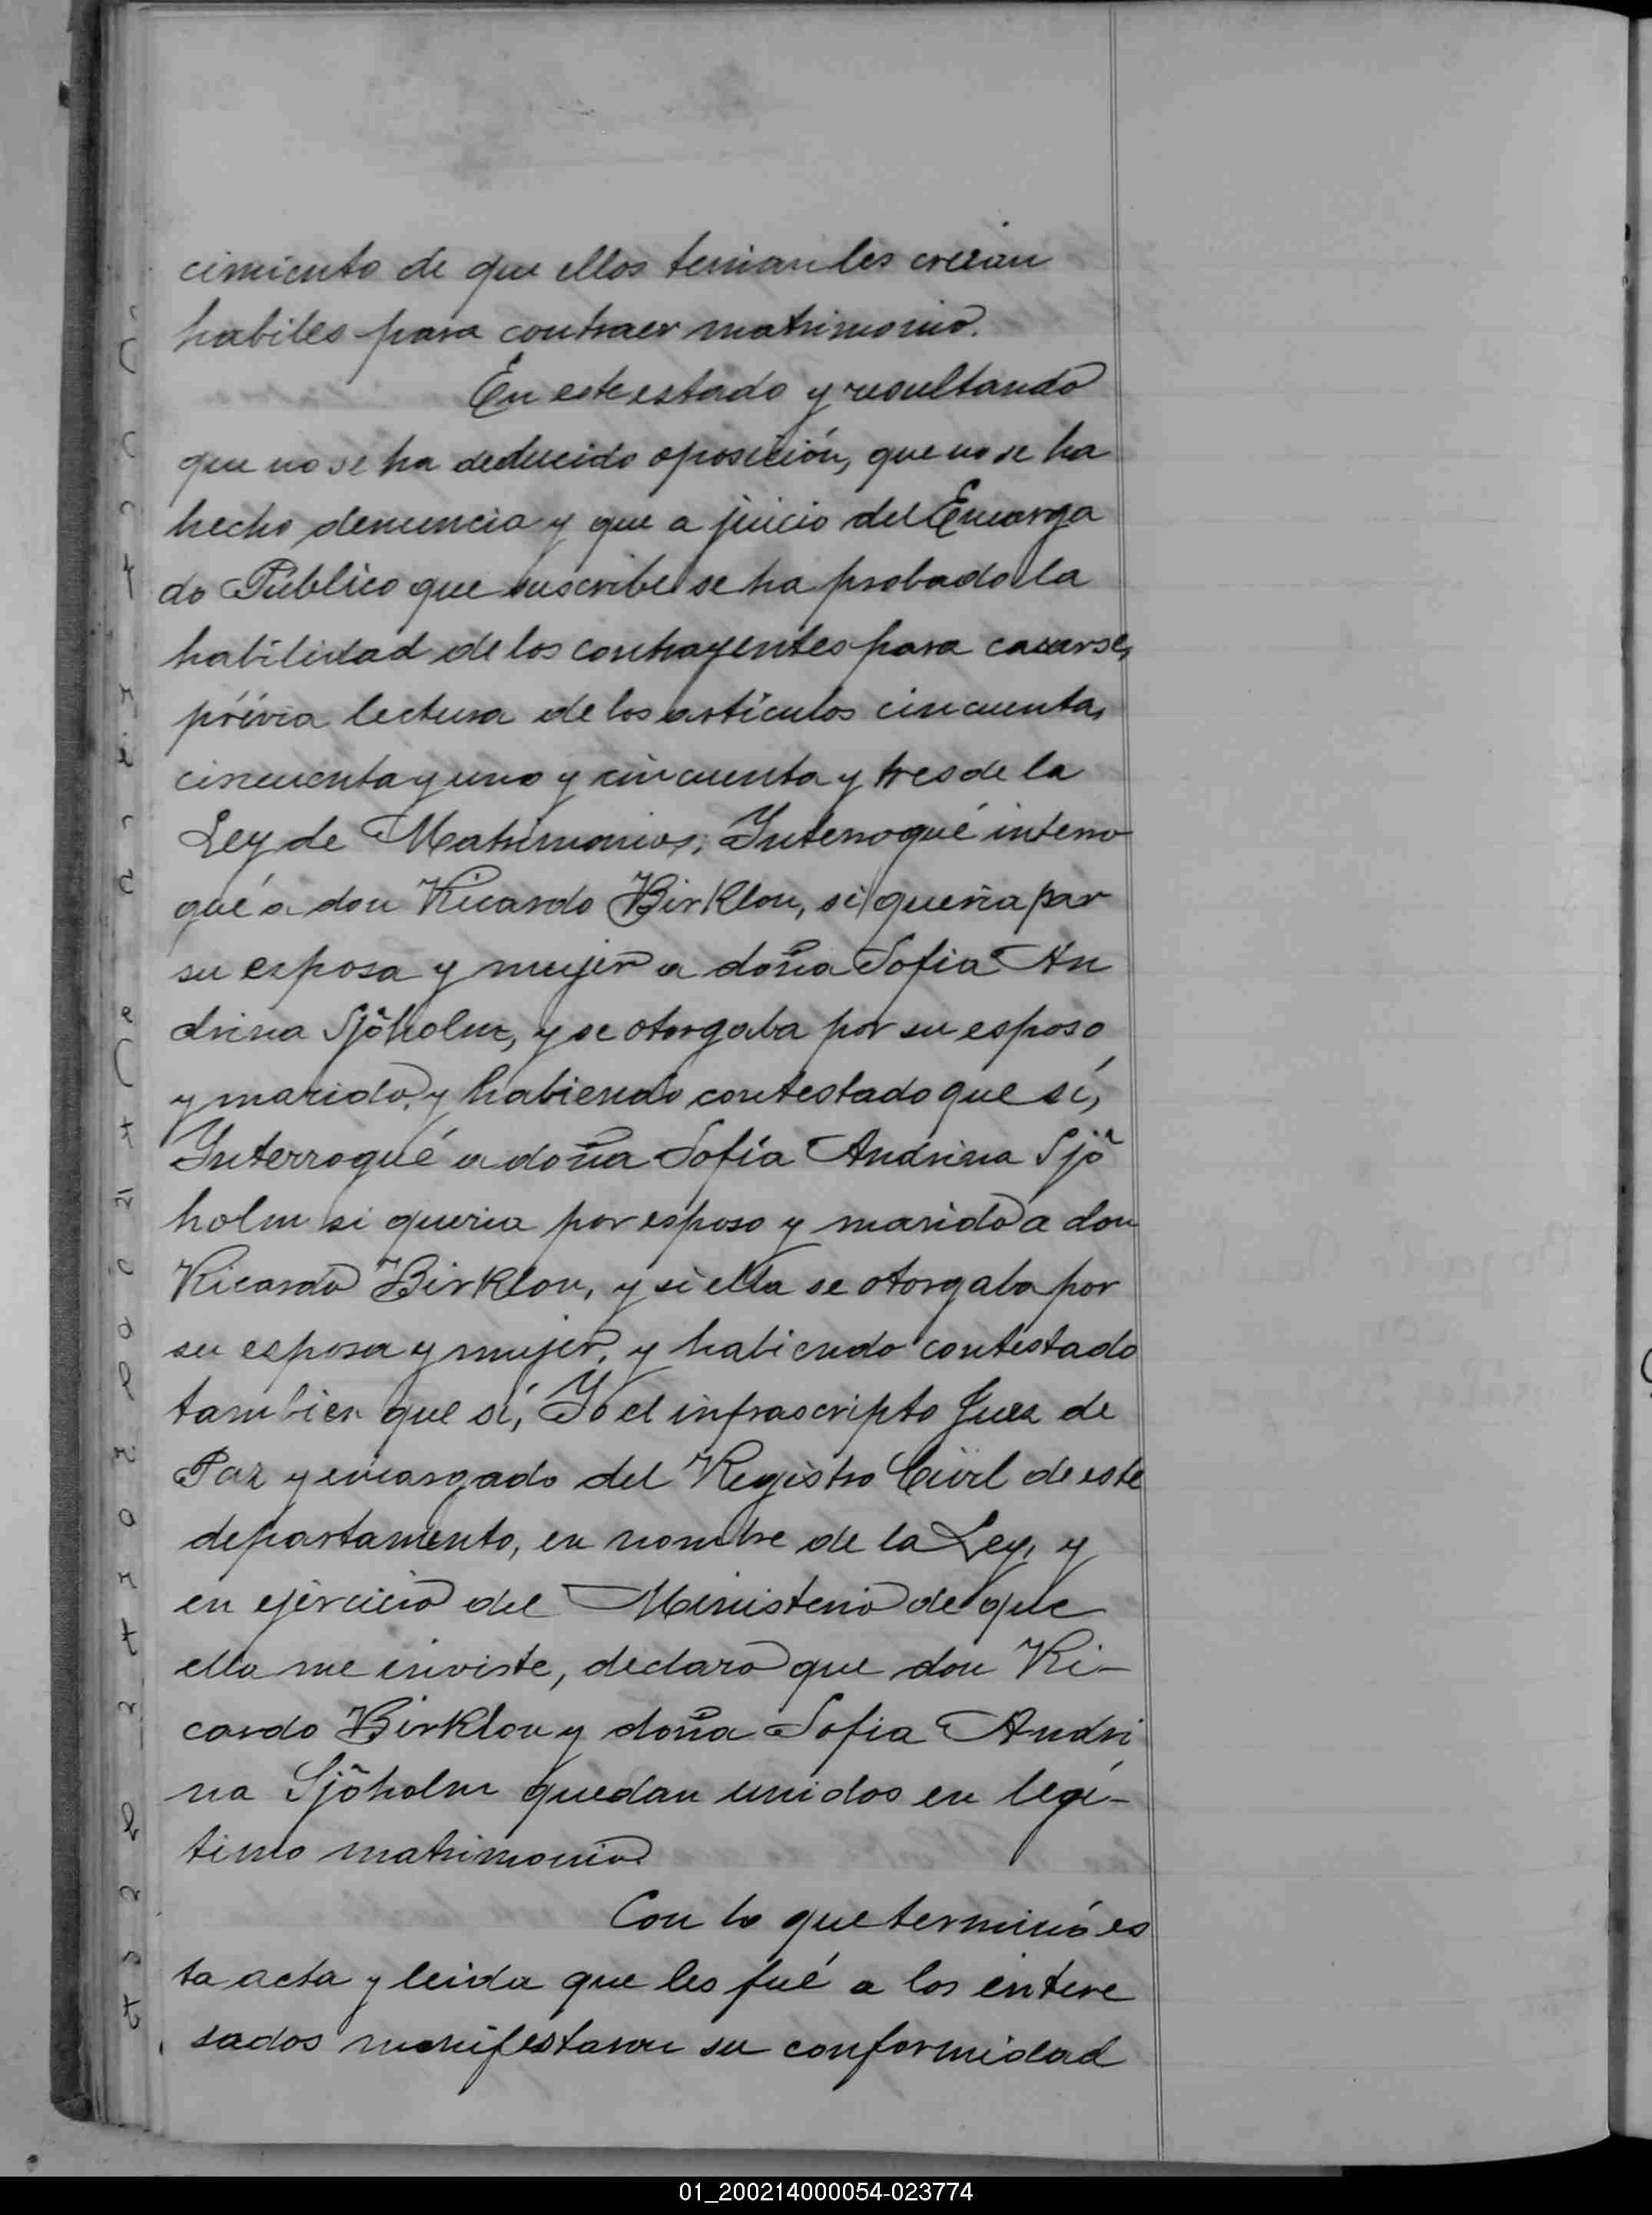 cimiento de que ellos tenian les creian
habiles para contraer matrimonio.
En este estado y resultando
que no se ha deducido oposición, que no se ha
hecho denuncia y que a juicio del Encarga
do Público que suscribe se ha probado la
habilidad de los contrayentes para casarse,
prévia lectura de los artículos cincuenta,
cincuenta y uno y cincuenta y tres de la
Ley de Matrimonios; Interrogué interro
gué a don Ricardo Birklon, si queria par
su esposa y mujer a doña Sofia An
drina Sjöholm, y se otorgaba por su esposo
y marido, y habiendo contestado que sí,
Interrogué a doña Sofía Andrina Sjö
holm si queria por esposo y marido a don
Ricardo Birklon, y si ella se otorgaba por
su esposa y mujer, y habiendo contestado
tambien que sí, Yo el infrascripto Juez de
Paz y encargado del Registro Civil de este
departamento, en nombre de la Ley, y
en ejercicio del Ministerio de que
ella me inviste, declaro que don Ri-
cardo Birklon y doña Sofia Andri
na Sjöholm quedan unidos en legí-
timo matrimonio
Con lo que terminó es
ta acta y leida que les fué a los intere
sados manifestaron su conformidad
01_200214000054-023774